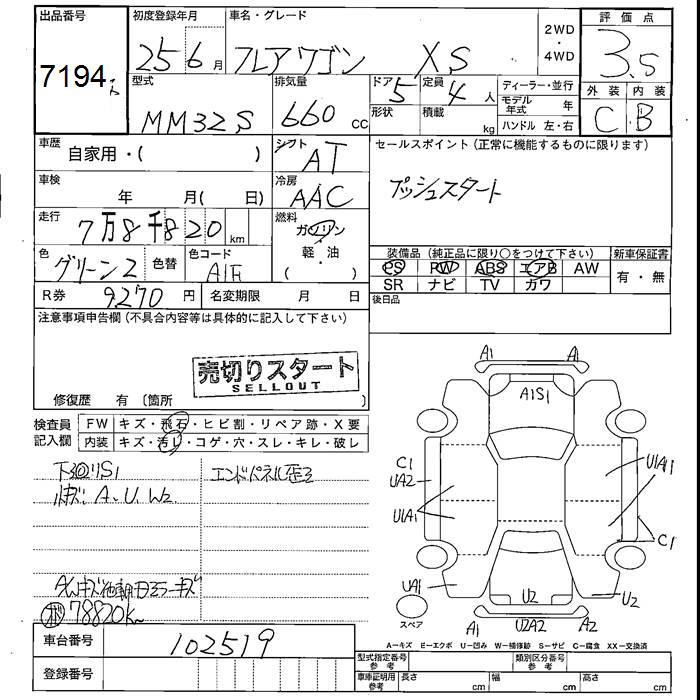 出品番号 初度登録年月 車名・グレード 2WD・4WD 評価点
7194 25年6月 フレアワゴン XS 3.5
型式 排気量 ドア 形状 定員 積載 ディーラー・並行 外装 内装
MM32S 660 cc 5 4人 kg モデル年式 年 C B
ハンドル 左・右
車歴 自家用・( ) シフト AT セールスポイント (正常に機能するものに限ります)
車検 年 月( 日) 冷房 AAC プッシュスタート
走行 7万8千820 km 燃料 ガソリン 軽・油 ( )
色 グリーン2 色替 色コード 装備品 (純正品に限り○をつけて下さい) 新車保証書
PS PW ABS エアB AW 有・無
SR ナビ TV ガワ
R券 9270円 名変期限 月 日 後日品
注意事項申告欄 (不具合内容等は具体的に記入して下さい)
売切りスタート
SELLOUT
修復歴 有 (箇所 )
検査員記入欄 FW キズ・飛石・ヒビ割・リペア跡・X要
内装 キズ・汚レ・コゲ・穴・スレ・キレ・破レ
エンドパネル歪ミ
A.U.W2
78820K
車台番号 102519
登録番号
A1 A1
A1S1
C1
UA2
U1A1
U1A1
C1
UA1
U2
U2
A1 U2A2 A2
スペア
A=キズ E=エクボ U=凹み W=補修跡 S=サビ C=腐食 XX=交換済
型式指定番号 参考 類別区分番号 参考
車庫証明用 参考 長さ cm 幅 cm 高さ cm